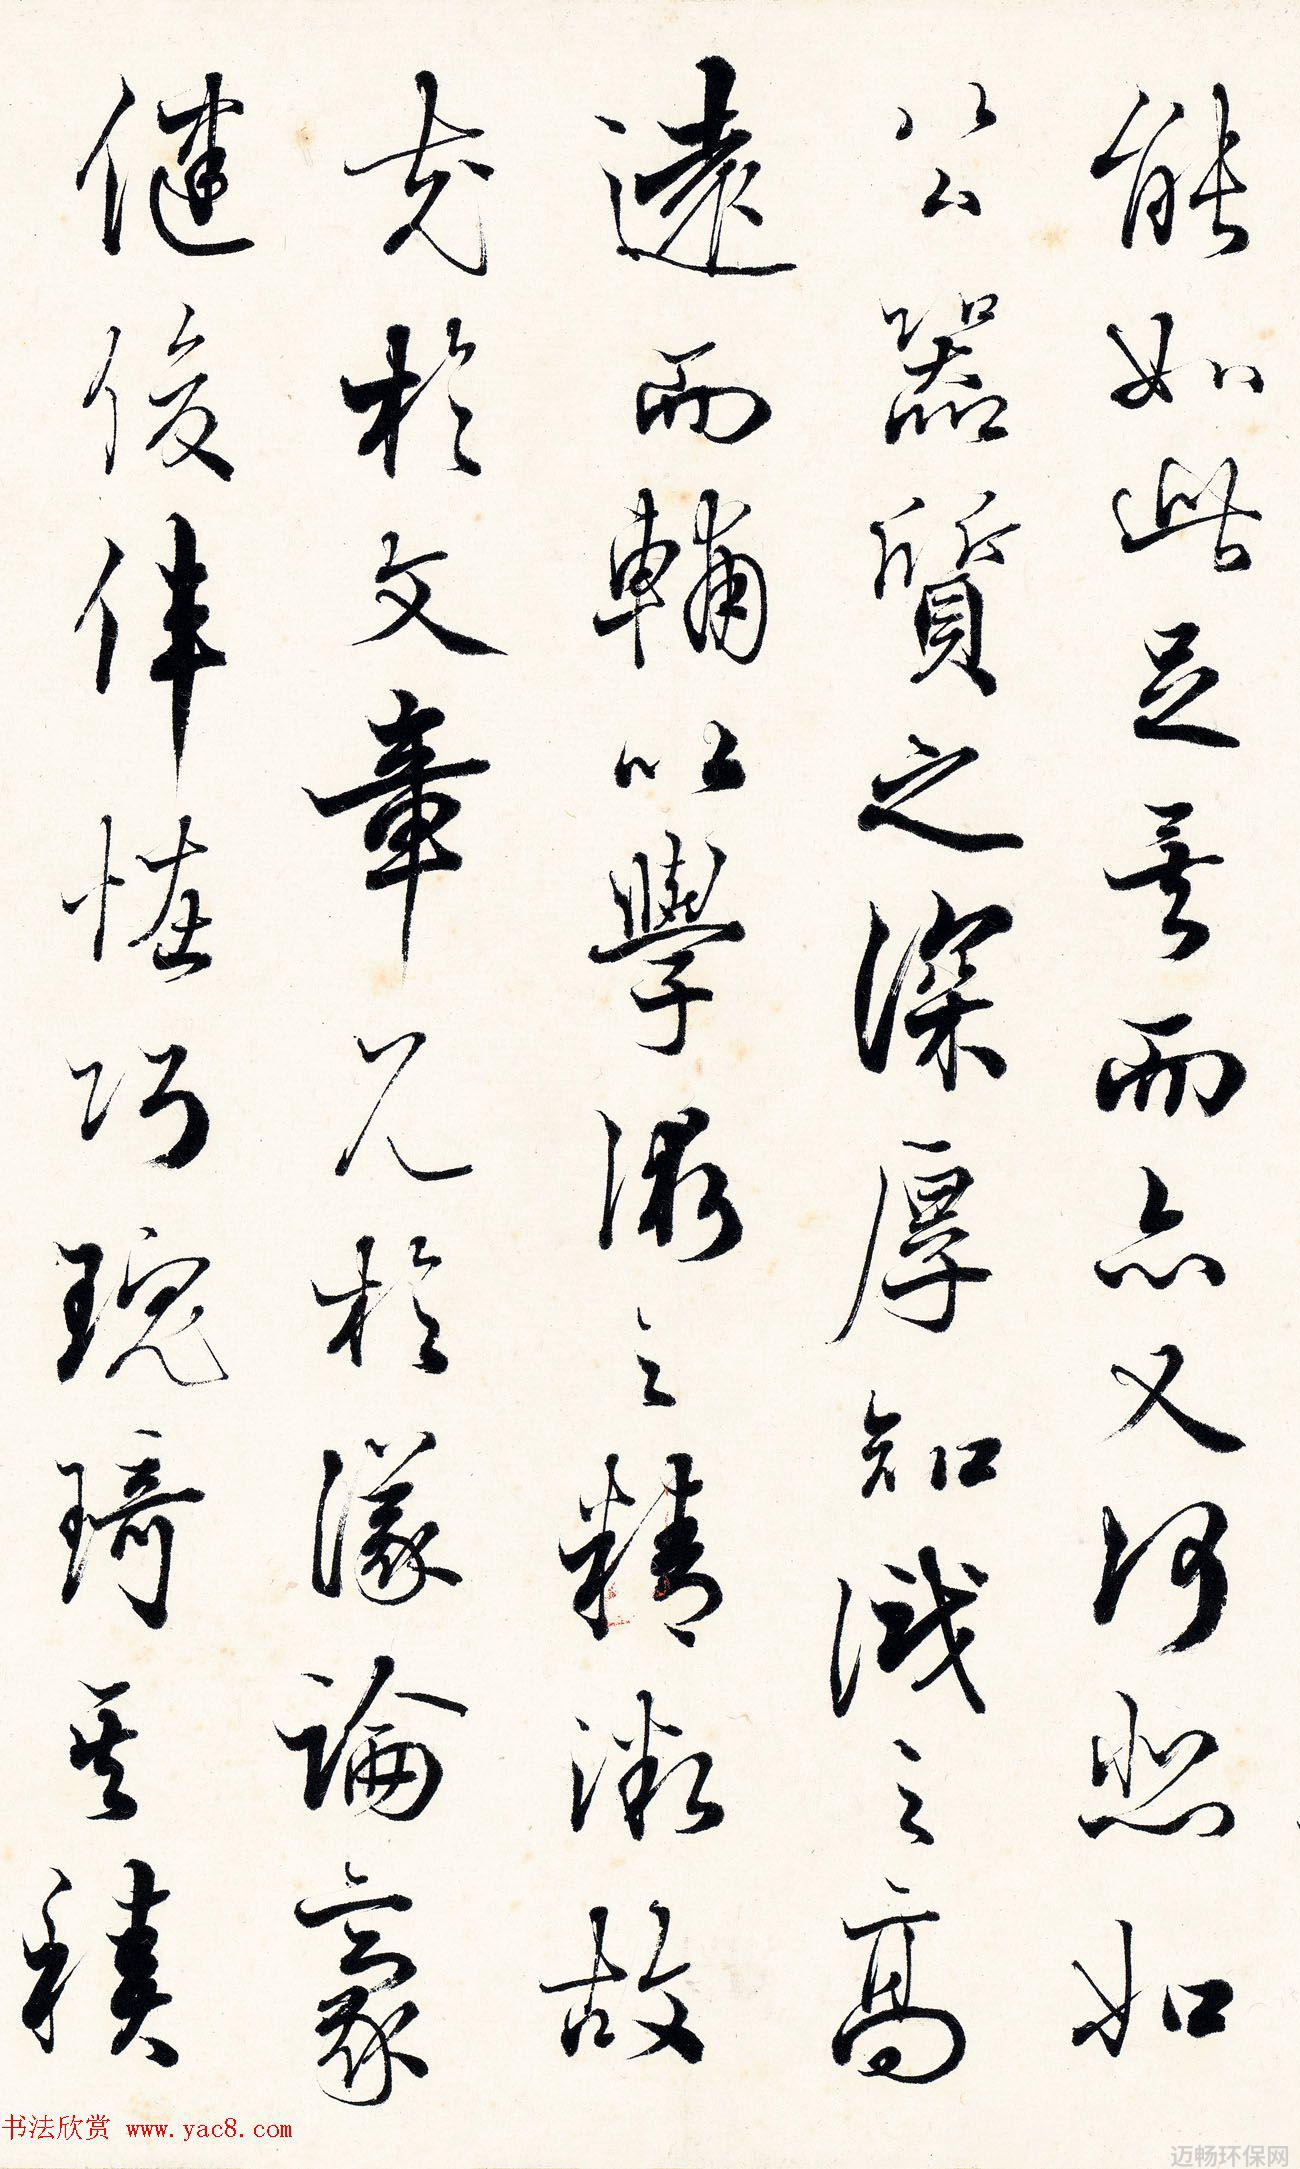 能如此足矣而亦又何悲如
公器質之深厚知識之高
遠而輔以學術之精微故
充於文章見於議論豪
健俊偉怪巧瑰琦其積
书法欣赏 www.yac8.com
迈畅环保网